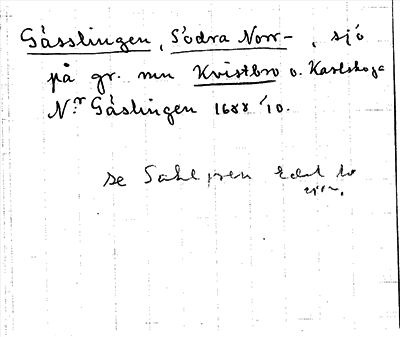 Gåsslingen, Södra Norr-, sjö
på gr. mn Kvistbro o. Karlskoga
N:r Gåslingen 1688 1/10.
se Sahlgren